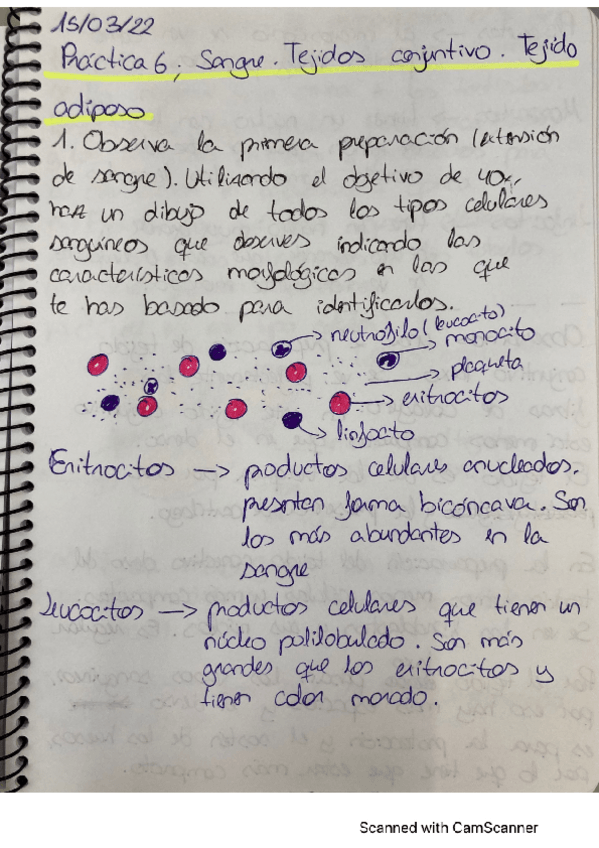 15/03/22
Práctica 6; Sangre. Tejidos conjuntivo. Tejido
adiposo
1. Observa la primera preparación (extensión
de sangre). Utilizando el objetivo de 40x,
haz un dibujo de todos los tipos celulares
sanguíneos que observes indicando las
características morfológicas en las que
te has basado para identificarlos.
neutrófilo (leucocito)
monocito
plaqueta
eritrocitos
linfocito
Eritrocitos → productos celulares anucleados.
presentan forma bicóncava. Son
los más abundantes en la
sangre
Leucocitos → productos celulares que tienen un
núcleo polilobulado. Son más
grandes que los eritrocitos y
tienen color morado.
Scanned with CamScanner